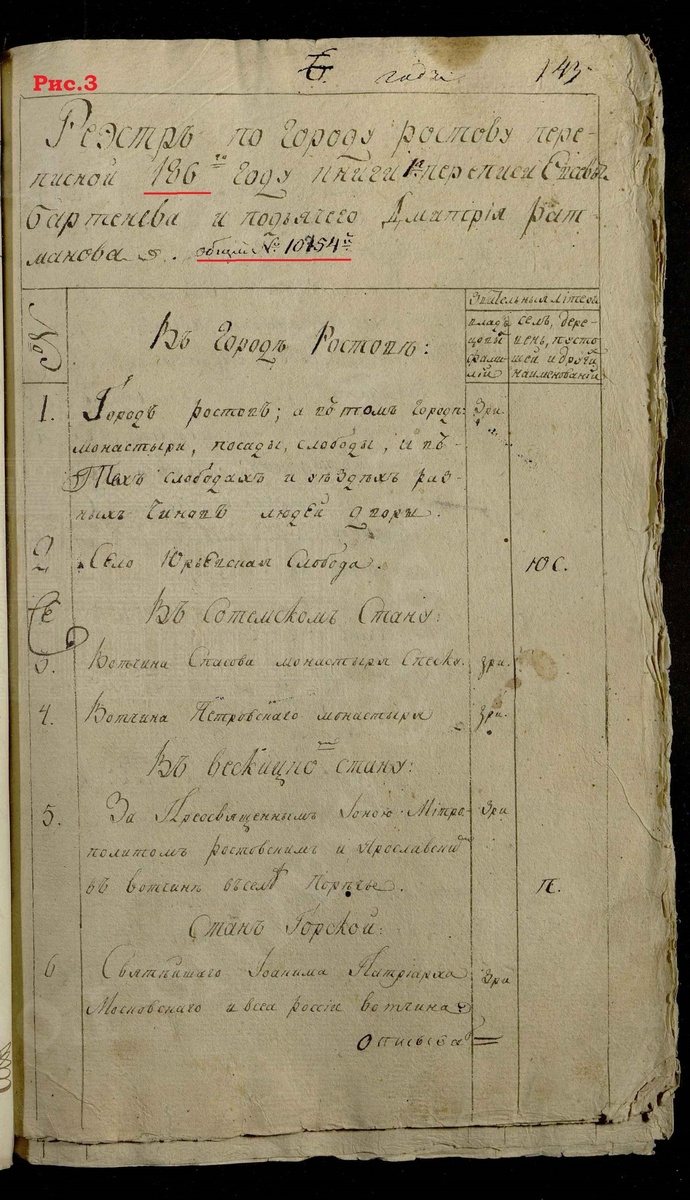 Рис.3
годъ 143
Реэстръ по городу ростову пере-
писной 186 го году книги переписи
бартенева и подъячего Дмитрія рат-
манова общий № 10754й
№
Въ Городѣ Ростовѣ:
литеры
селъ, дере-
вень, пусто-
шей и другій
наименованій
1. Городъ ростовъ; и въ томъ городѣ Зри.
монастыри, посады, слободы, и въ
тѣхъ слободахъ и уѣздѣхъ раз-
ныхъ чиновъ людей дворы.
2 Село Юрьевская Слобода. ЮС.
Въ Сотемскомъ Стану:
3. Вотчина Спасова монастыря Зри.
4. Вотчина Петровскаго монастыря Зри.
Въ стану:
5. За Преосвященнымъ Іоною Мітро- Зри
политомъ ростовскимъ и Ярославскимъ
въ вотчинѣ въ селѣ Порѣчье. П.
Станъ Горской:
6 Святѣйшаго Іоакима Патріарха Зри
Московскаго и всеа россіи вотчина